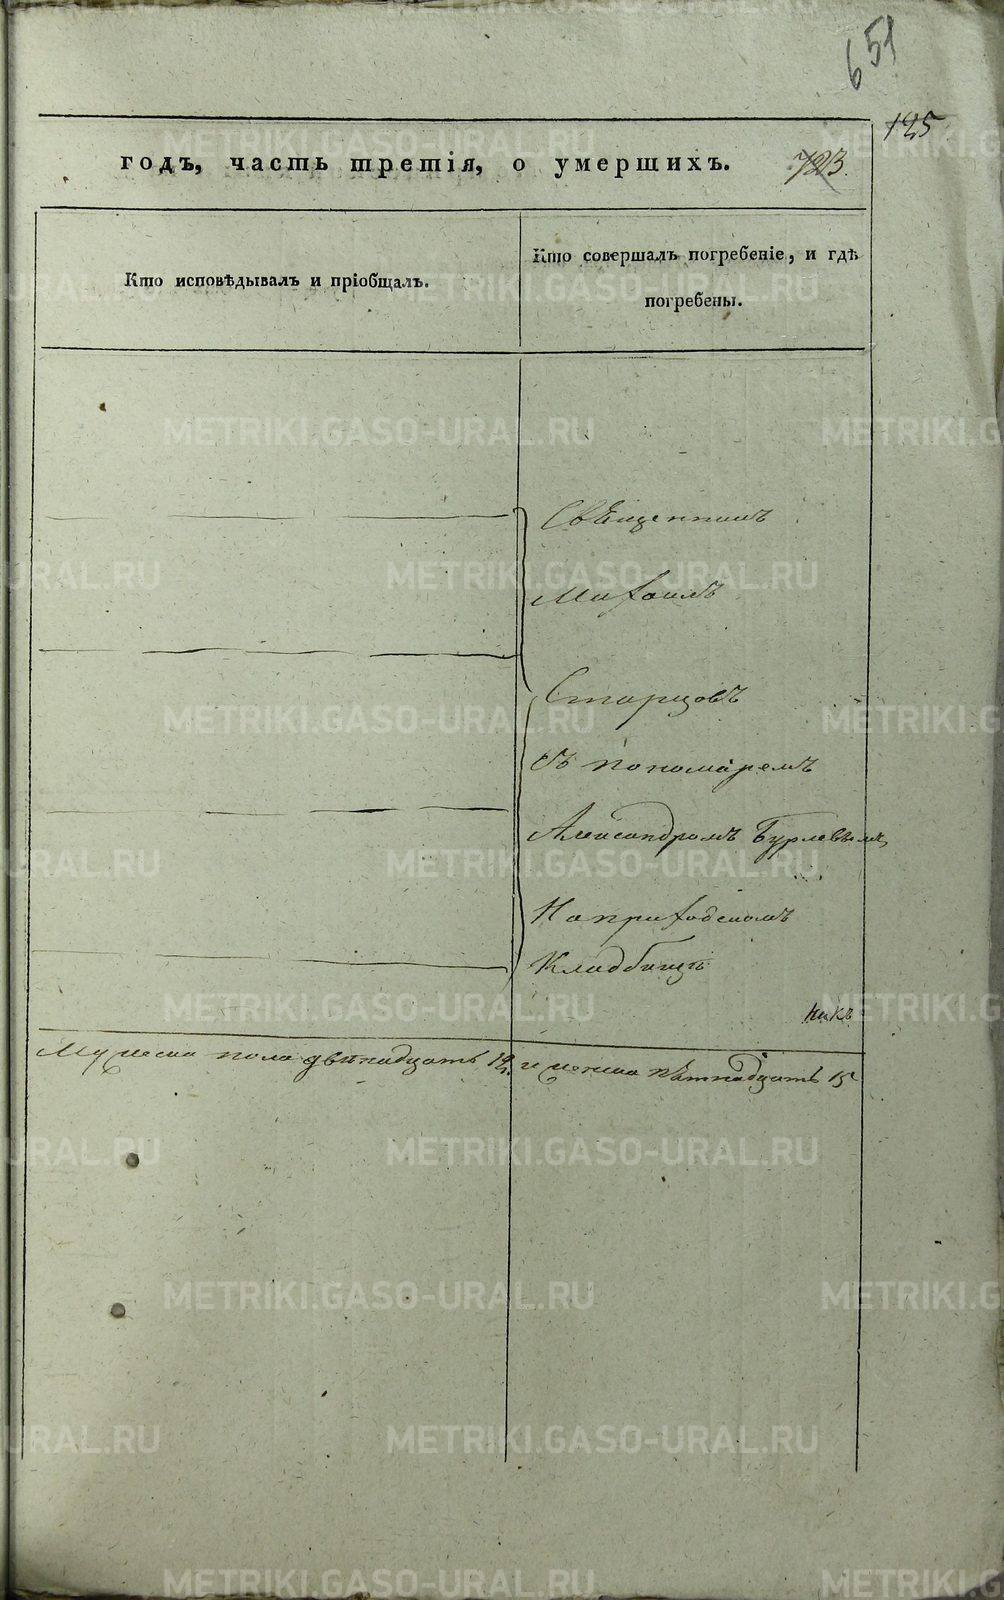 651
125
годъ, часть третія, о умершихъ. 723.
Кто исповѣдывалъ и пріобщалъ.
Кто совершалъ погребеніе, и гдѣ
погребены.
Священникъ
Михаилъ
Старцовъ
съ пономаремъ
Александромъ Бурлевымъ
На приходскомъ
Кладбищѣ
Мужеска пола двѣнадцать 12. и женска пѣтнадцать 15
METRIKI.GASO-URAL.RU